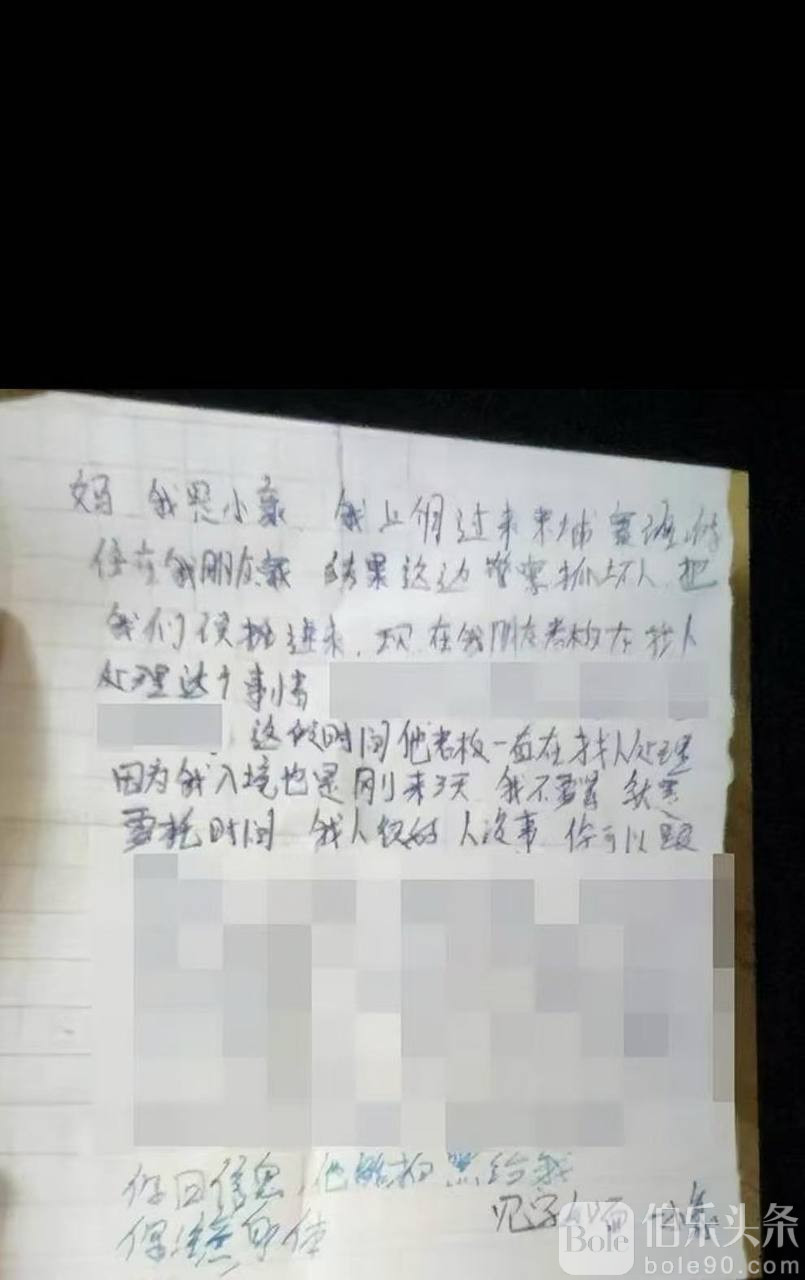 妈 我是小豪 我上個过来柬埔寨
住在我朋友家 结果这边警察抓坏人 把
我们 进来 现在我朋友老板在找人
处理这个事情
这段时间他老板一直在找人处理
因为我入境也是刚来3天 我不
需耗时间 我人 的 人没事 你可以跟
你回信息 他能拍 给我
保 身体 见字如面
伯乐头条
Bole
bole90.com